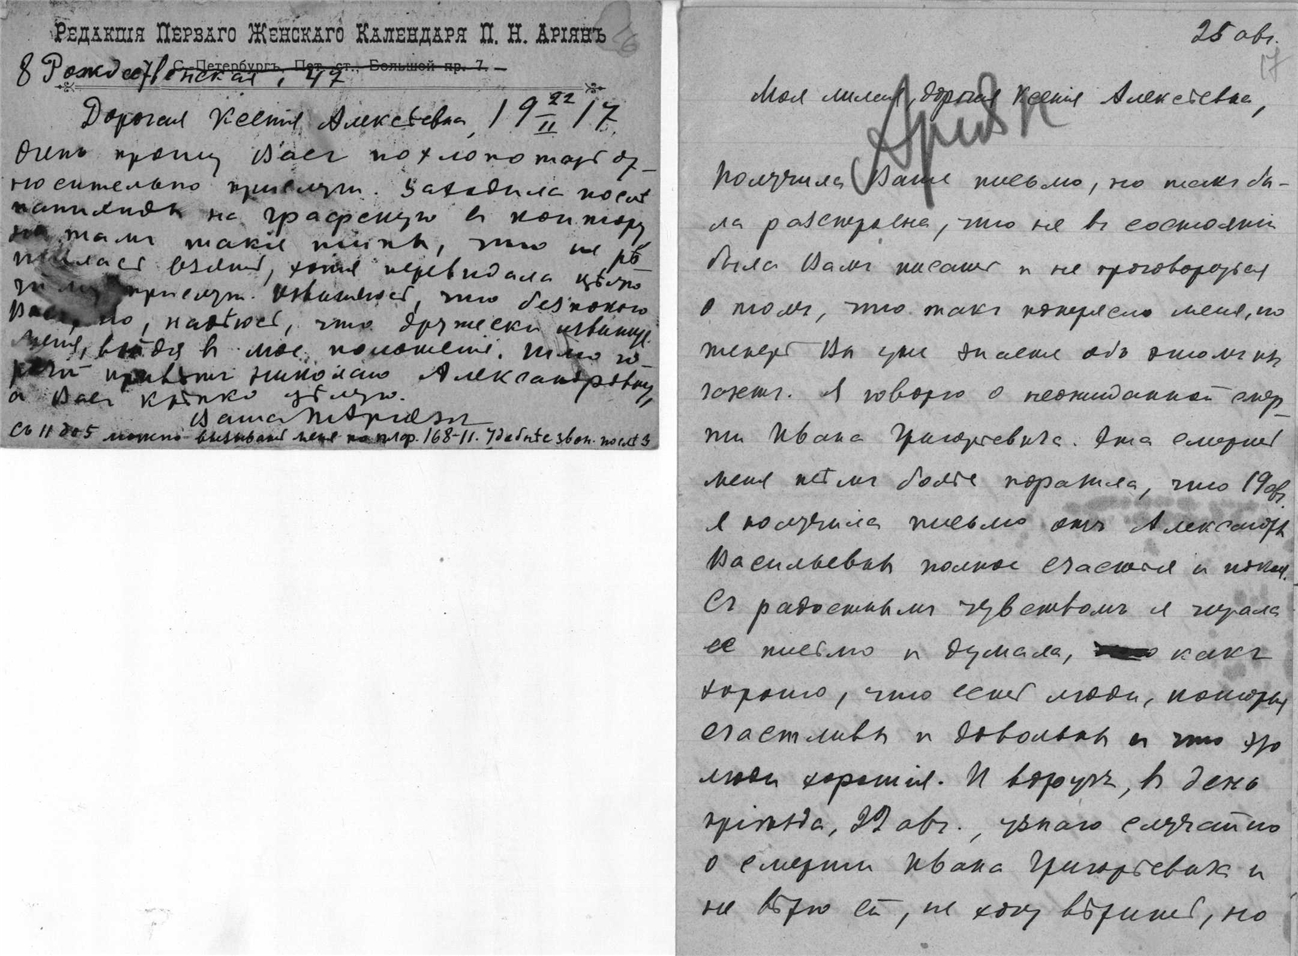 Редакція Перваго Женскаго Календаря П. Н. Аріянъ
С.-Петербургъ, Пет. ст., Большой пр. 7.
8 Рождественская, 47
Дорогая Ксенія Алексѣевна, 19 22/II 17
очень прошу Васъ похлопотать от-
носительно прислуги. Заходила послѣ
панихиды на графскую в контору
но тамъ такіе типы, что не рѣ-
шилась взять, хотя перевидала цѣлую
прислуг. Извиняюсь, что безпокою
Васъ, но, надѣюсь, что дружески извините
меня, войдя в мое положеніе. Шлю го-
рячій привѣтъ Николаю Александровичу,
а Васъ крѣпко цѣлую.
Ваша П. Аріянъ
Съ 11 до 5 можно вызывать меня по тлф. 168-11. Удобнѣе звон. послѣ 3
25 авг.
17
Аріян
Моя милая, дорогая Ксенія Алексѣевна,
Получила Ваше письмо, но такъ бы-
ла разстроена, что не въ состояніи
была Вамъ писать и не проговориться
о томъ, что такъ потрясло меня, но
теперь Вы уже знаете объ этомъ из
газетъ. Я говорю о неожиданной смер-
ти Ивана Григорьевича. Эта смерть
меня тѣмъ болѣе поразила, что 19 авг.
я получила письмо отъ Александры
Васильевны полное счастья и покоя.
Съ радостнымъ чувствомъ я читала
ее письмо и думала, какъ
хорошо, что есть люди, которые
счастливы и довольны и что это
люди хорошіе. И вдругъ, в день
пріѣзда, 22 авг., узнаю случайно
о смерти Ивана Григорьевича и
не вѣрю ей, не хочу вѣрить, но